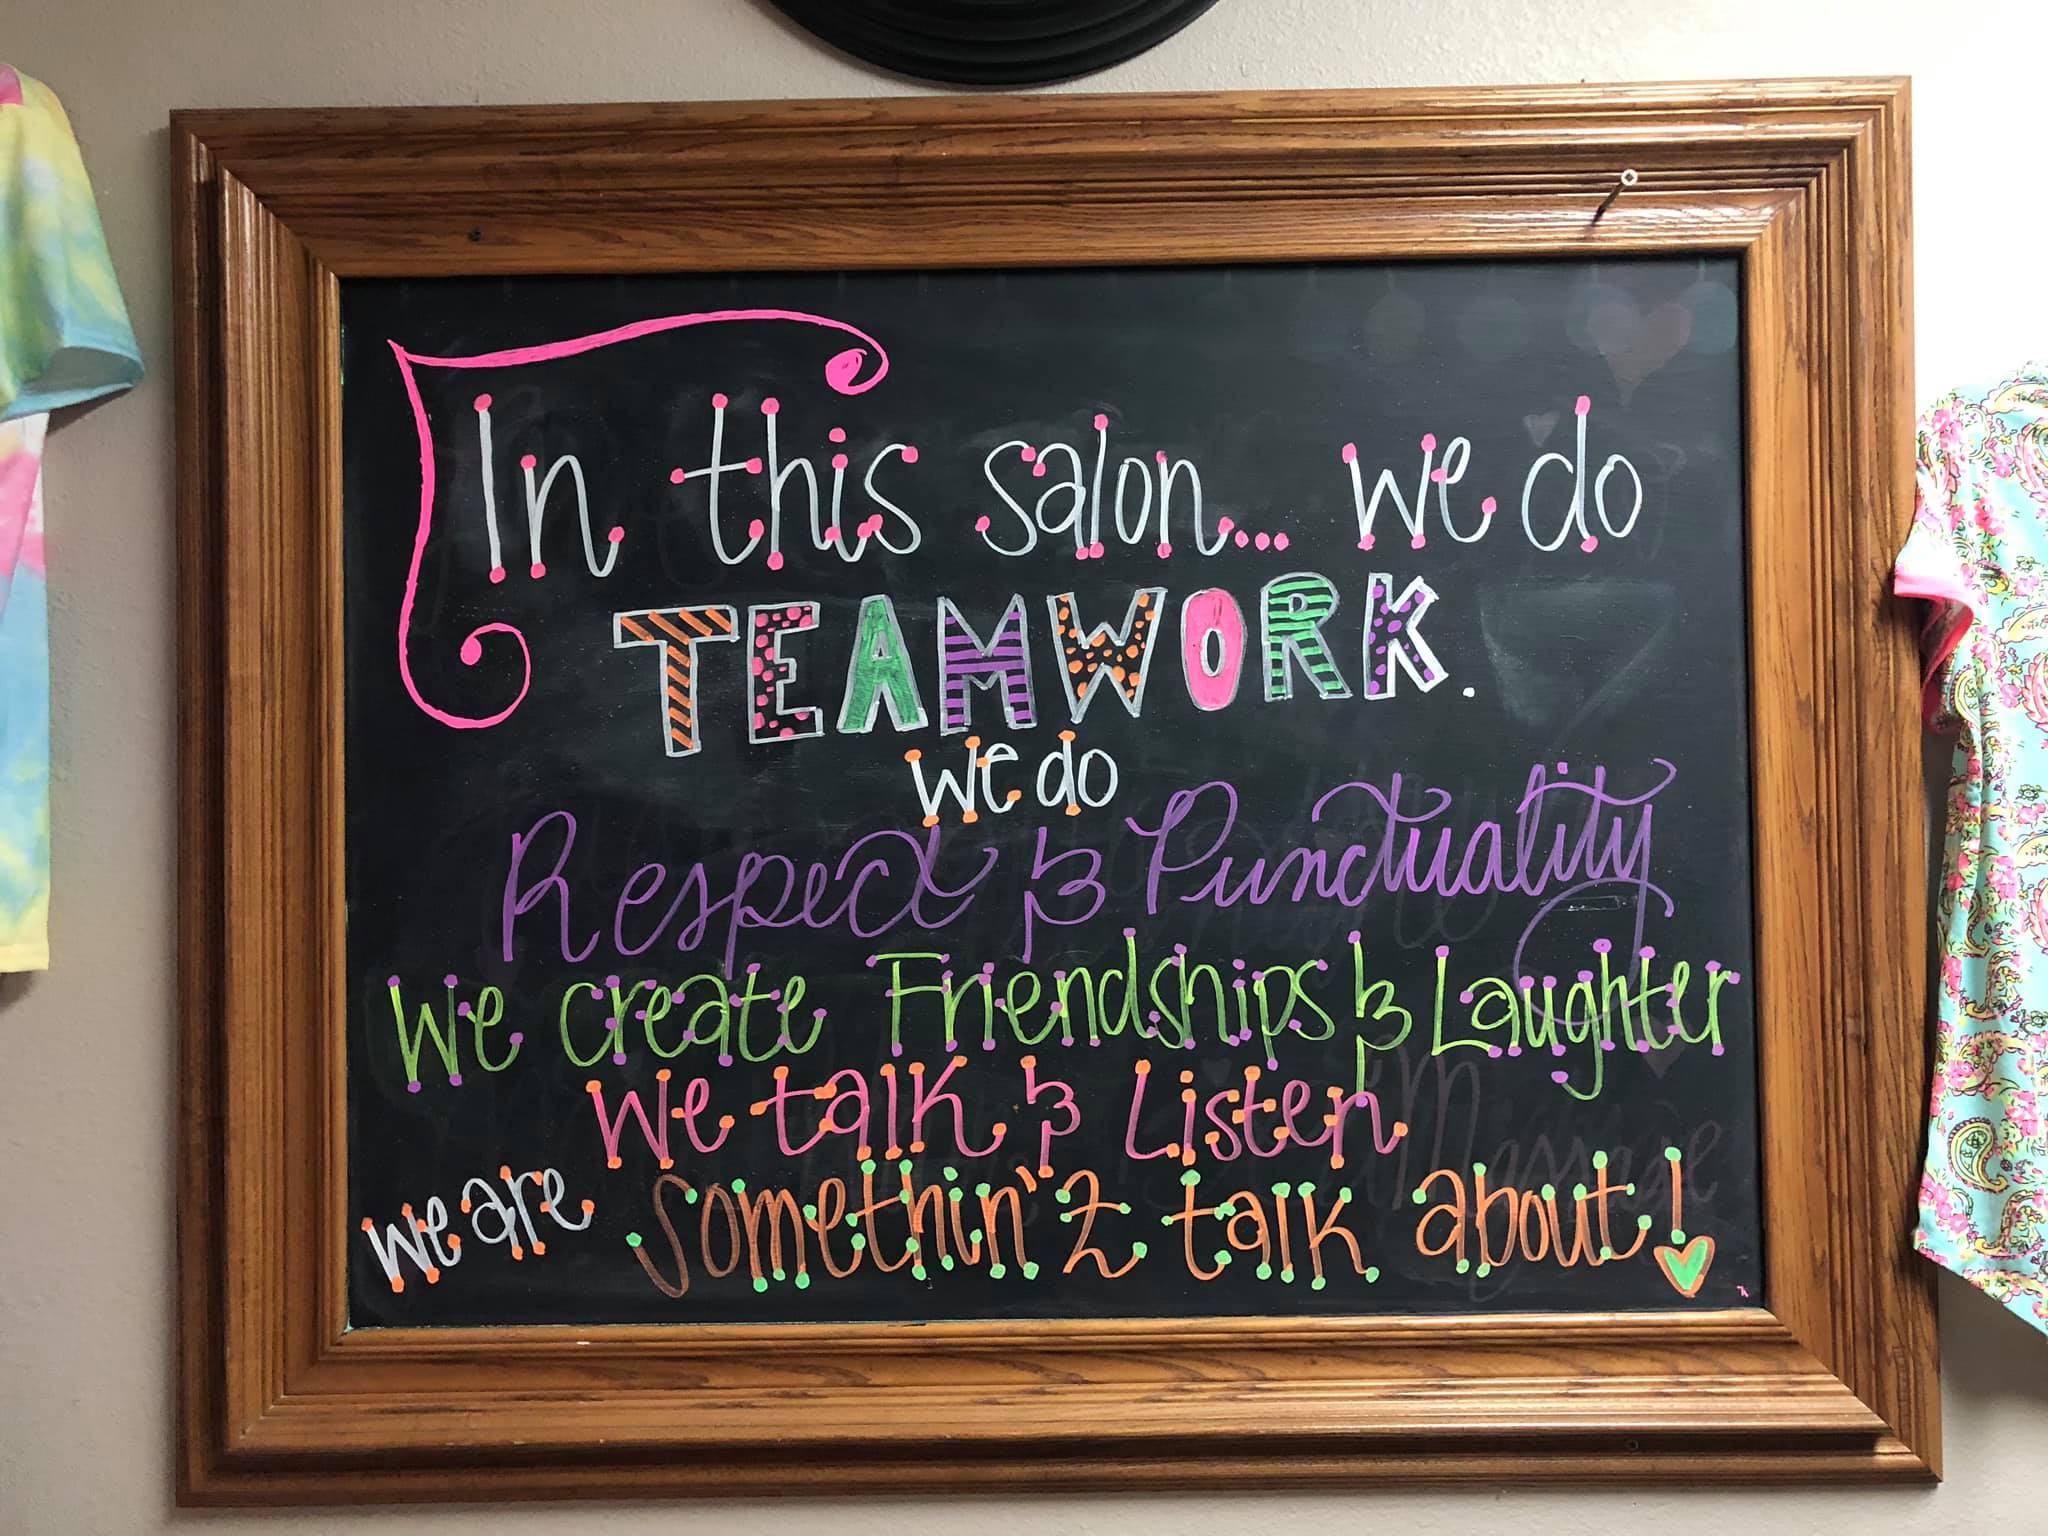 In this salon... we do
TEAMWORK.
we do
Respect & Punctuality
We create Friendships & Laughter
We talk & Listen
we are somethin' 2 talk about!
Massage